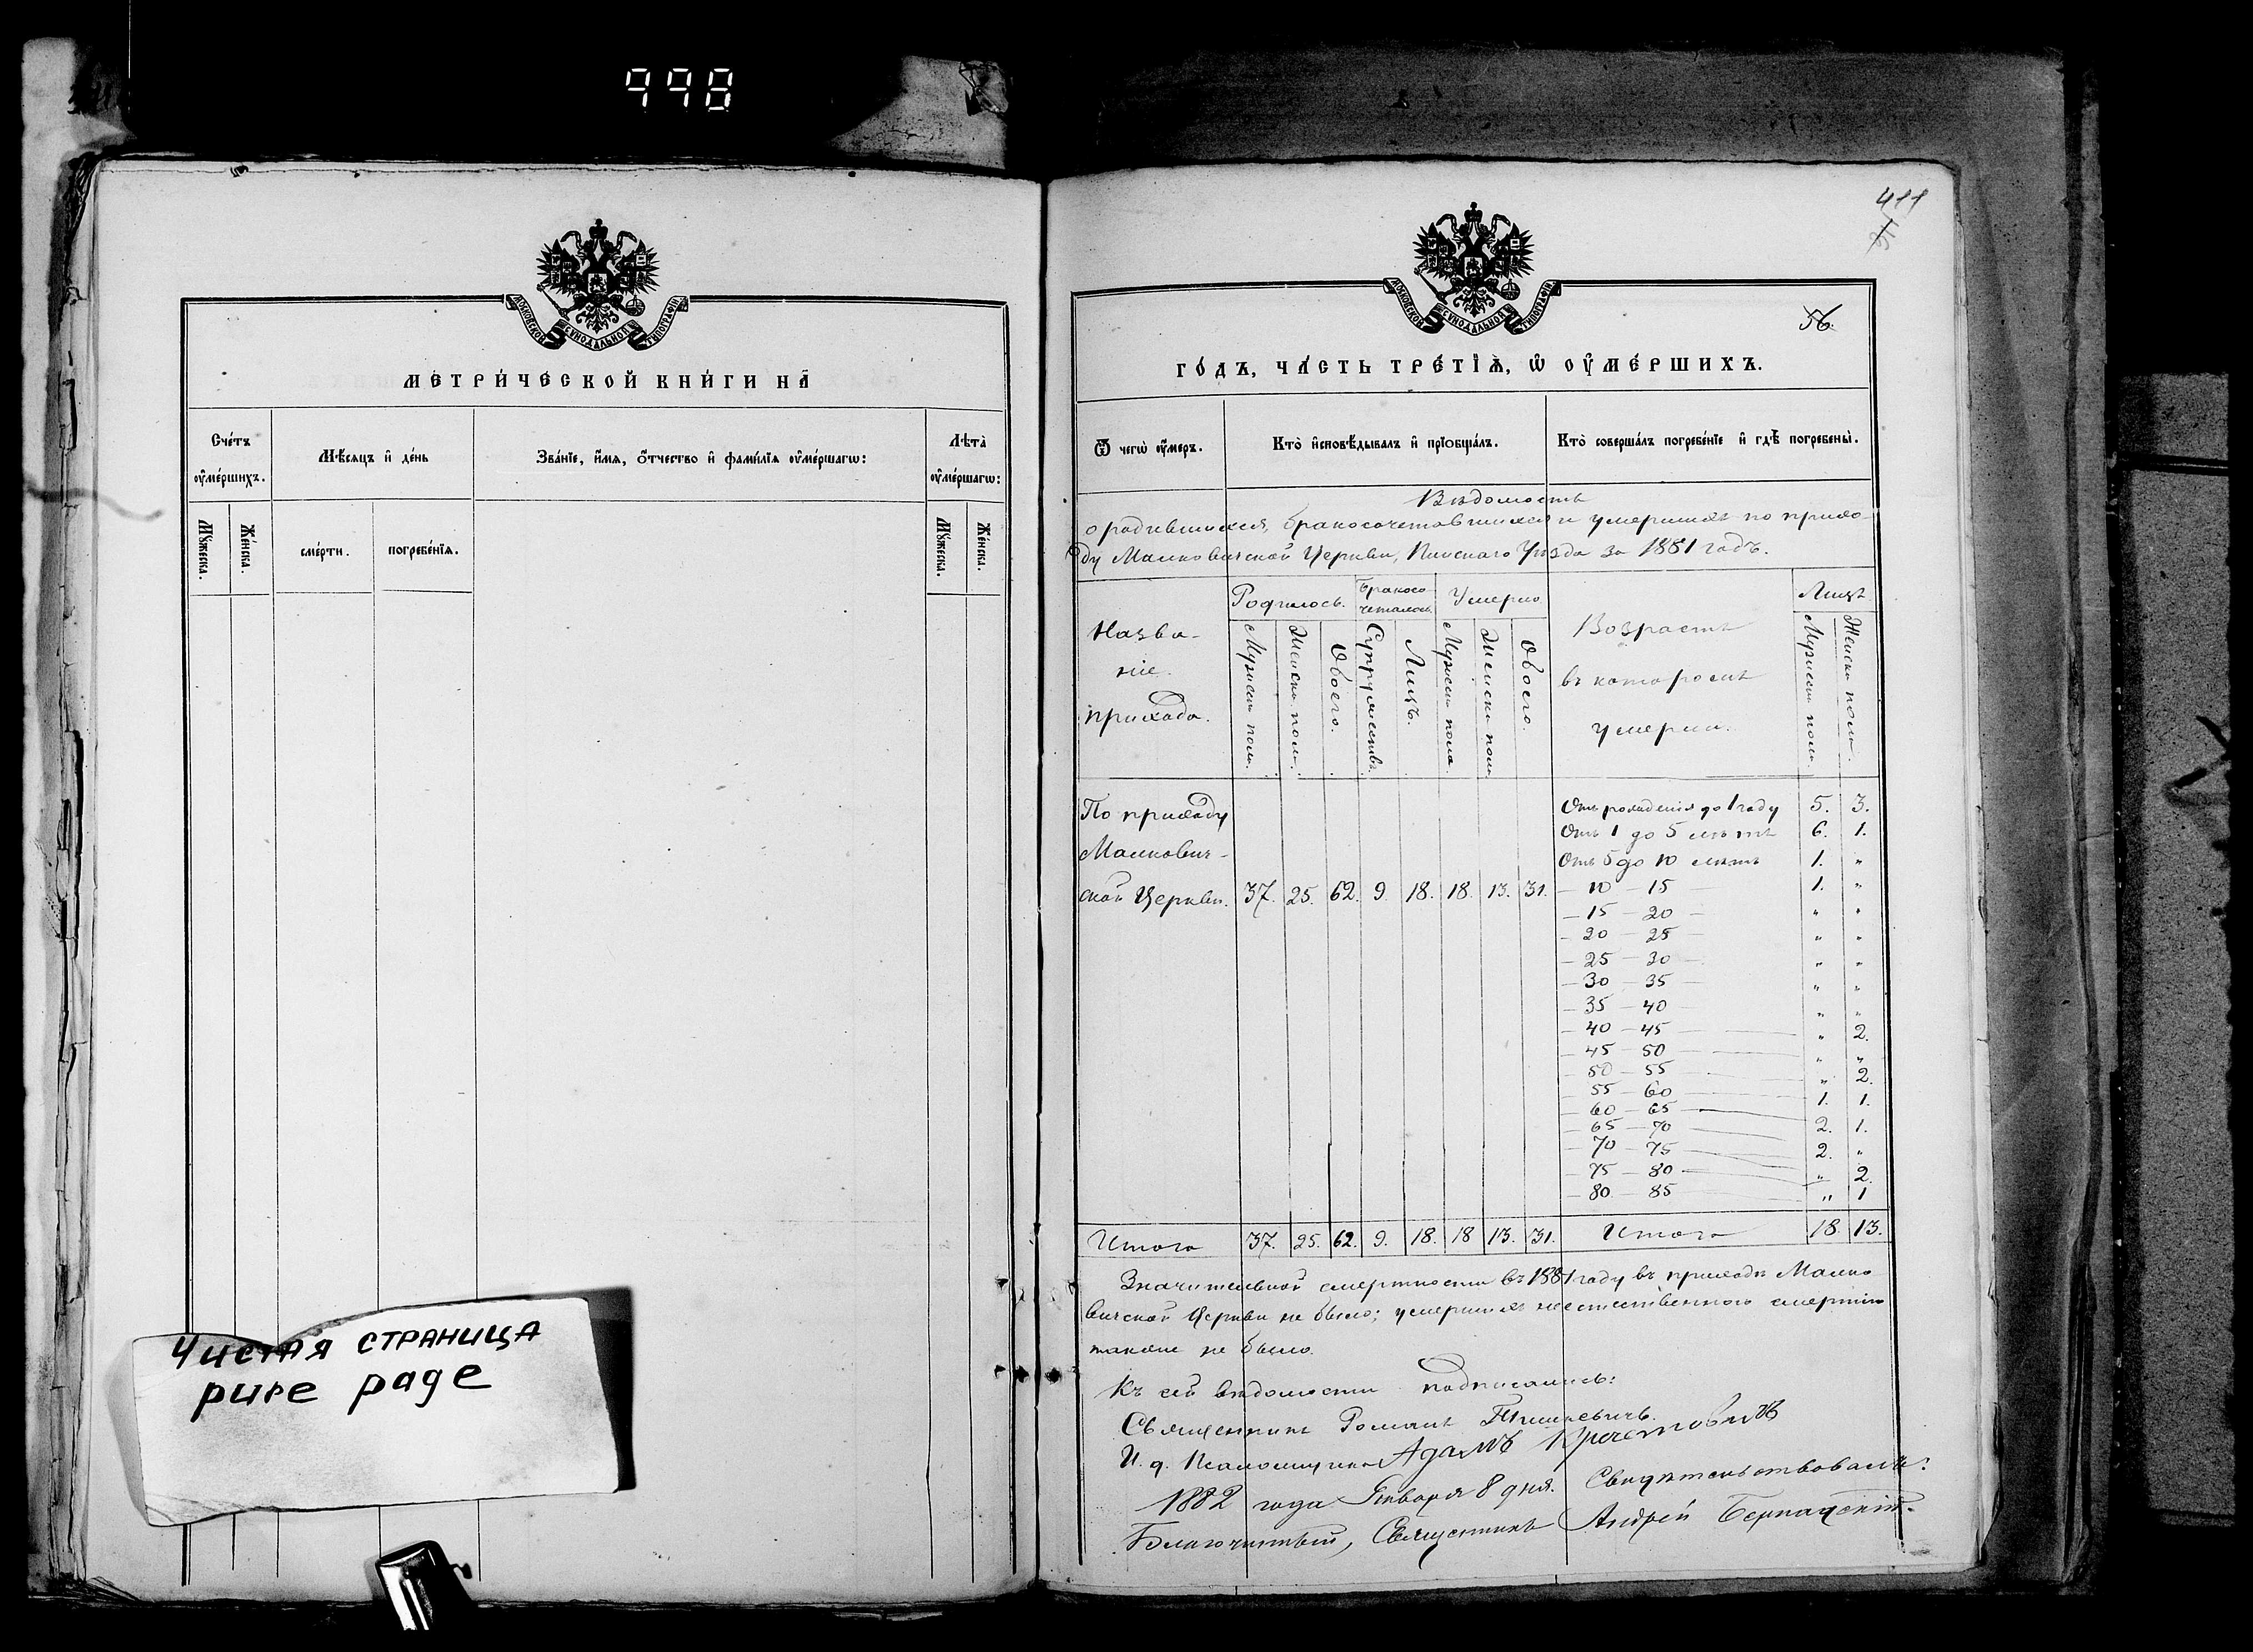 998
МОСКОВСКОЙ СѴНОДАЛЬНОЙ ТИПОГРАФІИ
МЕТРИ́ЧЕСКОЙ КНИ́ГИ НА̀
Сче́тъ ᲂу҆ме́ршихъ.
Мѣ́сяцъ и҆ де́нь
Зва́нїе, и҆́мя, ѻ҆́тчество и҆ фами́лїя ᲂу҆ме́ршагѡ:
Лѣ́та ᲂу҆ме́ршагѡ:
Мꙋ́жеска.
Же́нска.
сме́рти.
погребе́нїѧ.
Мꙋ́жеска.
Же́нска.
Чистая страница
pure page
411
56.
МОСКОВСКОЙ СѴНОДАЛЬНОЙ ТИПОГРАФІИ
ГО́ДЪ, ЧА́СТЬ ТРЕ́ТЇѦ, Ѡ҆ ОУ҆МЕ́РШИХЪ.
Ѿ чегѡ̀ ᲂу҆́меръ.
Кто̀ и҆сповѣ́дывалъ и҆ прїѡбща́лъ.
Кто̀ соверша́лъ погребе́нїе и҆ гдѣ̀ погребены̀.
Вѣдомость
о родившихся, бракосочетавшихся и умершихъ по прихо-
ду Малковичской Церкви, Пинскаго Уѣзда за 1881 годъ.
Назва-
ніе
прихода.
Родилось.
Бракосо-
четалось.
Умерло.
Мужеск. пола.
Женска пола.
Обоего.
Супружествъ.
Лицъ.
Мужеск. пола
Женска пола
Обоего.
Возрастъ
въ которомъ
умерли.
Лицъ
Мужеска пола
Женска пола.
По приходу
Малкович-
ской Церкви. 37. 25. 62. 9. 18. 18. 13. 31.
Отъ рожденія до 1 году 5. 3.
Отъ 1 до 5 лѣтъ 6. 1.
Отъ 5 до 10 лѣтъ 1. „
— 10 — 15 — 1. „
— 15 — 20 — „ „
— 20 — 25 — „ „
— 25 — 30 — „ „
— 30 — 35 — „ „
— 35 — 40 — „ „
— 40 — 45 — „ 2.
— 45 — 50 — „ „
— 50 — 55 — „ 2.
— 55 — 60 — 1. 1.
— 60 — 65 — 2. 1.
— 65 — 70 — 2. „
— 70 — 75 — „ 2.
— 75 — 80 — „ 1
— 80 — 85
Итого 37. 25. 62. 9. 18. 18 13. 31. Итого 18. 13.
Значительной смертности въ 1881 году въ приходѣ Малко
вичской Церкви не было; умершихъ неестественною смертію
также не было.
Къ сей вѣдомости подписались:
Священникъ Романъ
И. д. Псаломщика Адамъ
1882 года Января 8 дня. Свидѣтельствовалъ:
Благочинный, Священникъ Андрей